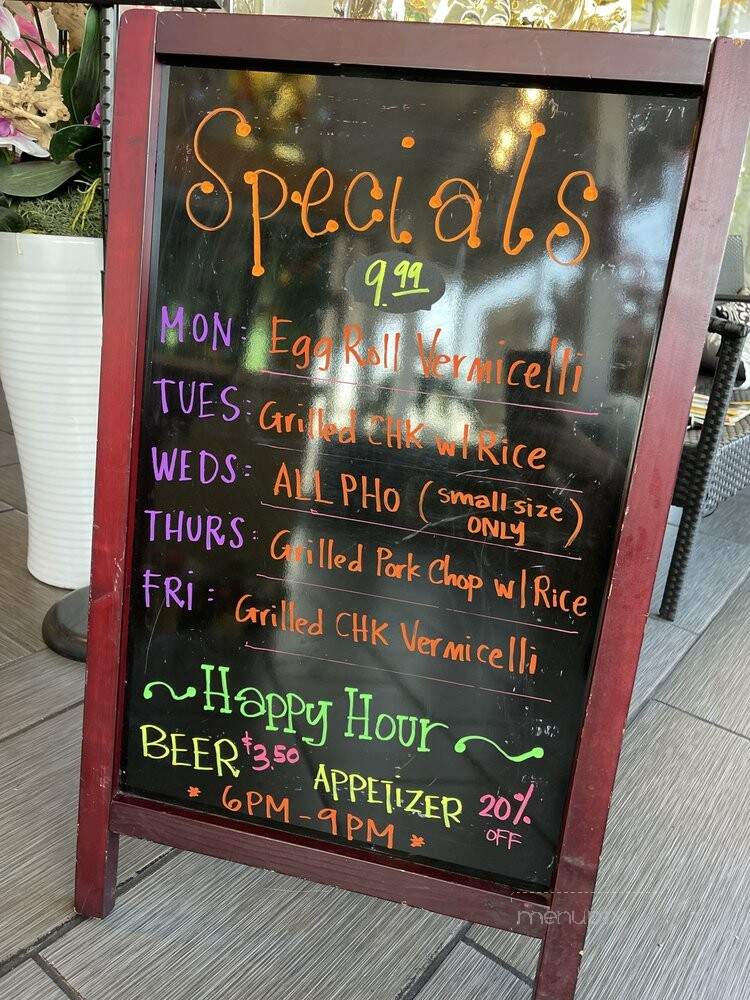 Specials
9.99
MON: Egg Roll Vermicelli
TUES: Grilled CHK w/ Rice
WEDS: ALL PHO (small size ONLY)
THURS: Grilled Pork Chop w/ Rice
FRI: Grilled CHK Vermicelli
~Happy Hour~
BEER $3.50 APPETIZER 20% OFF
* 6PM - 9PM *